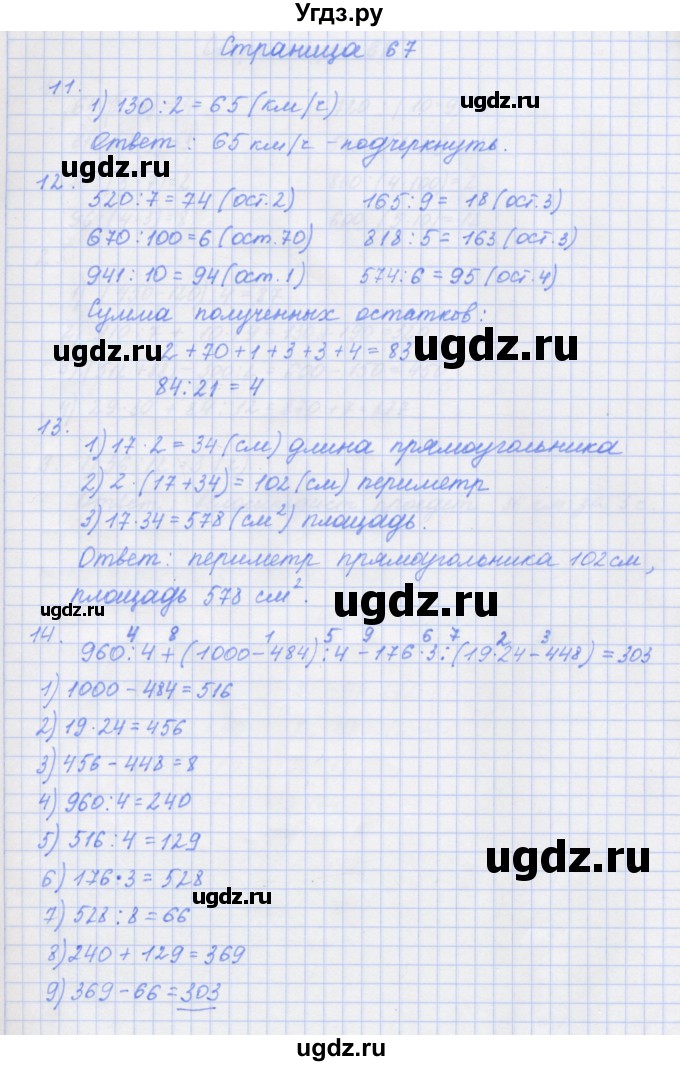 Угдз.ру
Страница 67
11.
1) 130 : 2 = 65 (км/ч)
ugdz.ru
Ответ : 65 км/ч - подчеркнуть.
ugdz.ru
12.
520 : 7 = 74 (ост. 2) 165 : 9 = 18 (ост. 3)
ugdz.ru
670 : 100 = 6 (ост. 70) 818 : 5 = 163 (ост. 3)
941 : 10 = 94 (ост. 1) 574 : 6 = 95 (ост. 4)
Сумма полученных остатков :
ugdz.ru 2 + 70 + 1 + 3 + 3 + 4 = 83 ugdz.ru
84 : 21 = 4
13.
1) 17 · 2 = 34 (см) длина прямоугольника
2) 2 · (17 + 34) = 102 (см) периметр
3) 17 · 34 = 578 (см²) площадь.
Ответ : периметр прямоугольника 102 см,
площадь 578 см².
ugdz.ru ugdz.ru
14.
4 8 1 5 9 6 7 2 3
960 : 4 + (1000 - 484) : 4 - 176 · 3 : (19 · 24 - 448) = 303
1) 1000 - 484 = 516
2) 19 · 24 = 456
3) 456 - 448 = 8
4) 960 : 4 = 240
5) 516 : 4 = 129
ugdz.ru
6) 176 · 3 = 528
ugdz.ru
7) 528 : 8 = 66
8) 240 + 129 = 369
9) 369 - 66 = 303
ugdz.ru